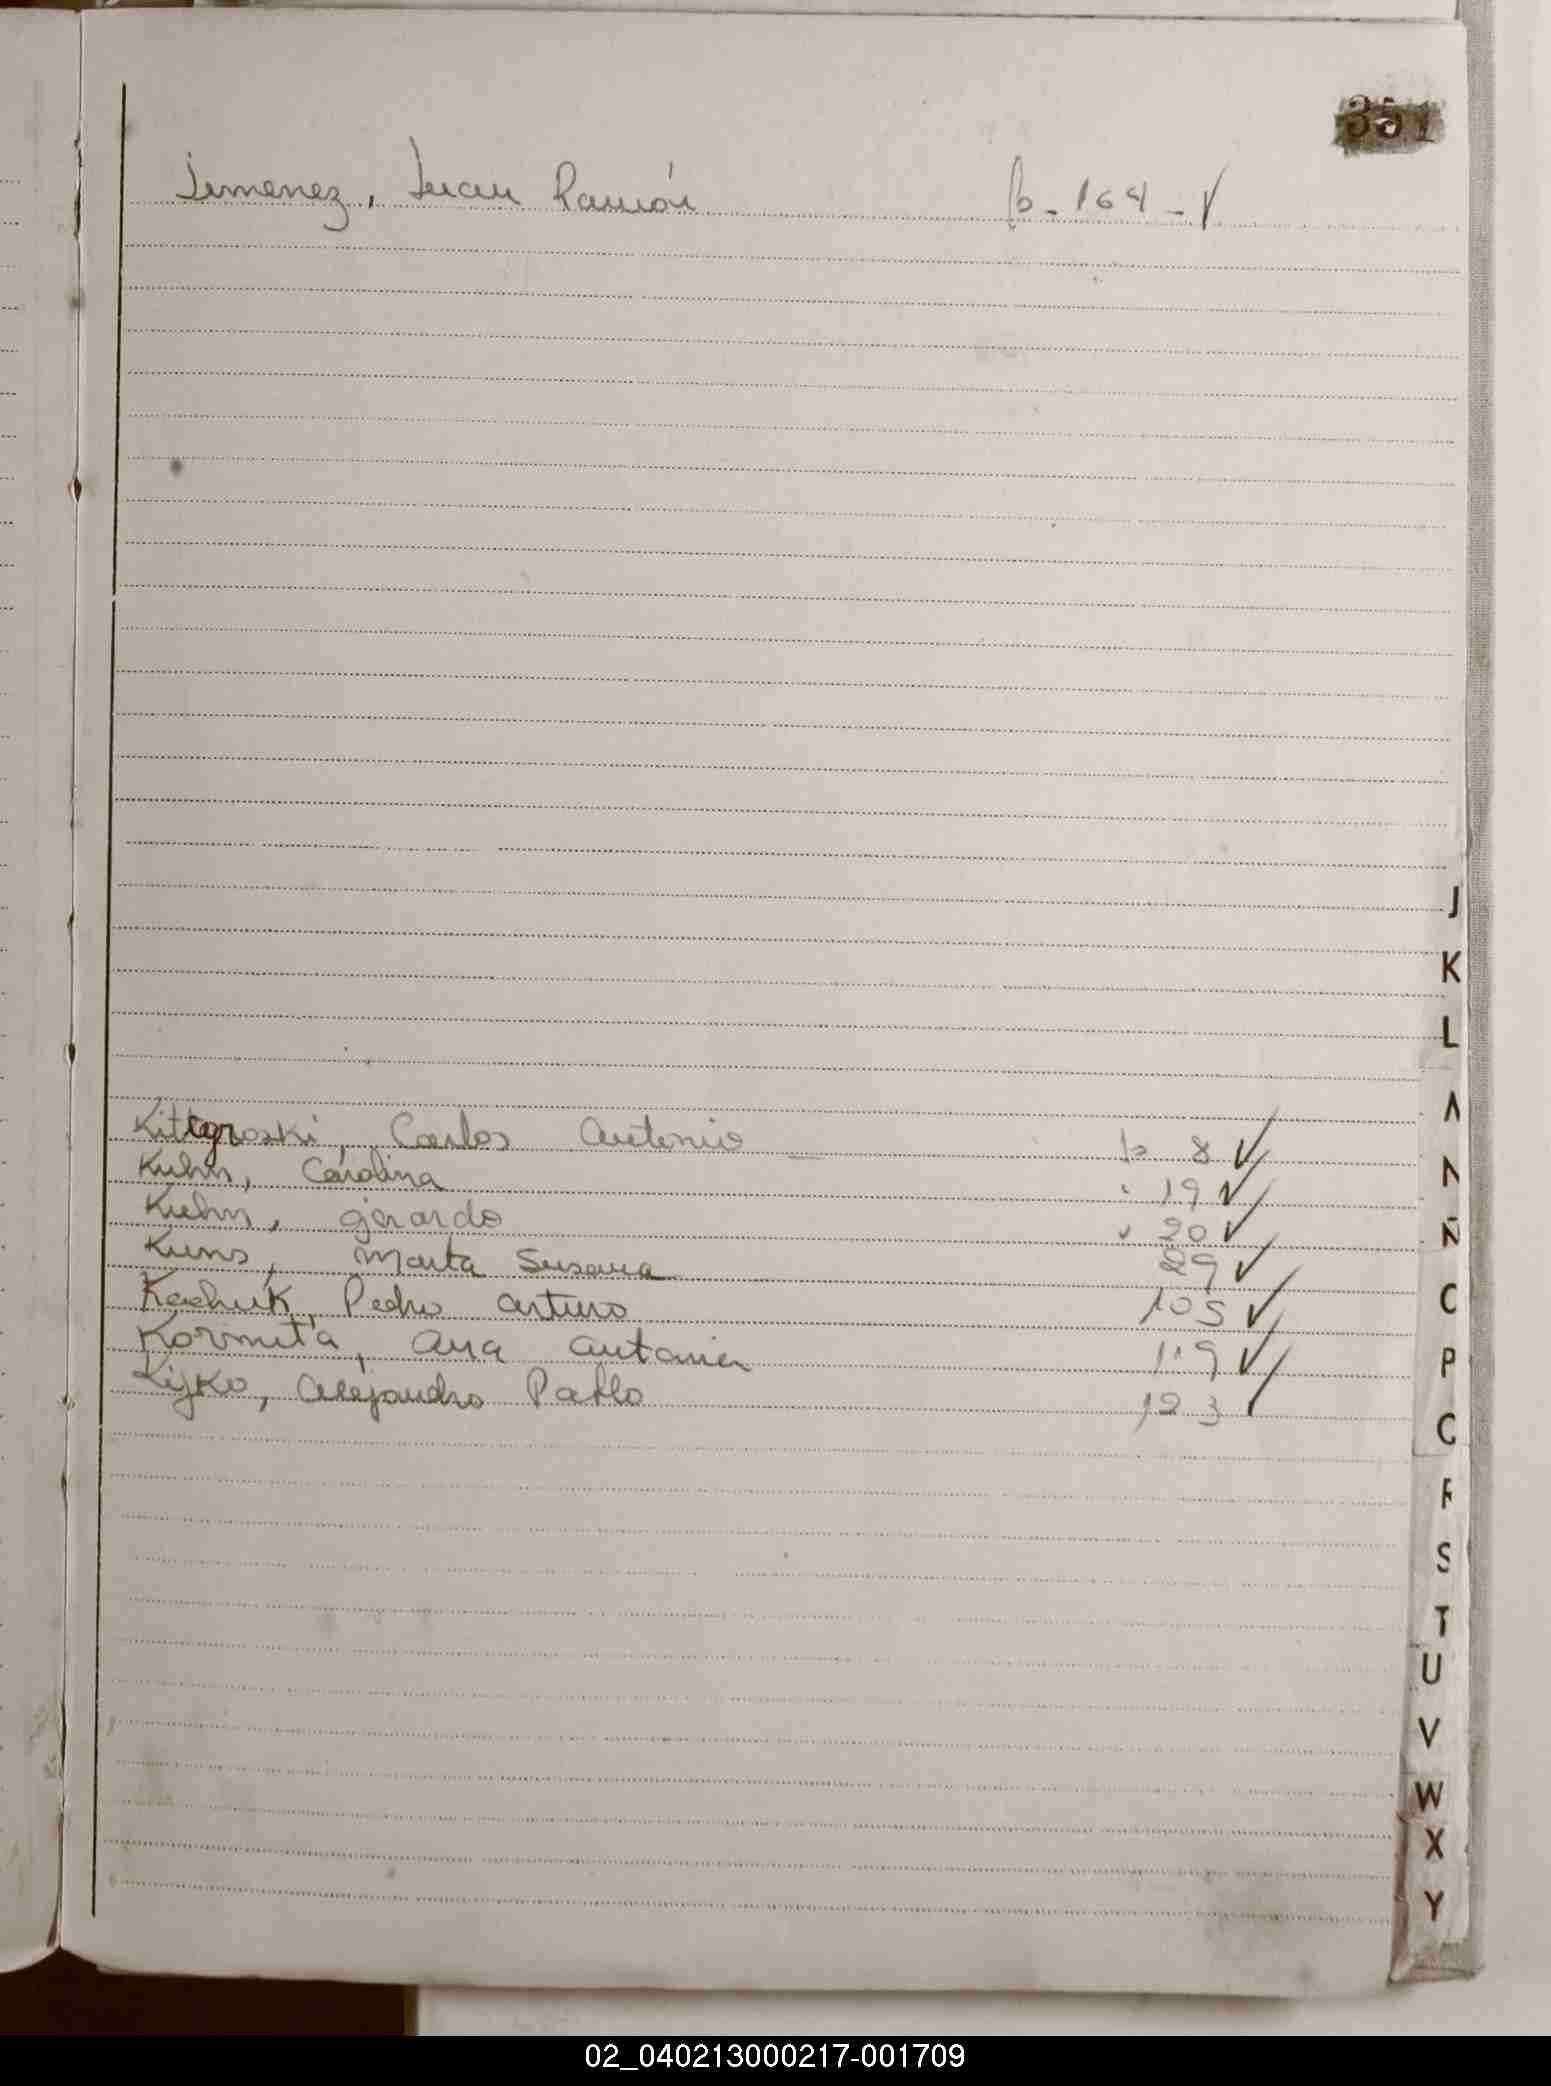 351
Jimenez, Juan Ramón fo - 164 - ✓
Carlos Antonio _ fo 8 ✓
Kuhn, Carolina " 19 ✓
Kuhn, Gerardo " 20 ✓
Kuns, Marta Susana 29 ✓
Kachuk, Pedro Arturo 105 ✓
Kormita, Ana Antonia 119 ✓
Kijko, Alejandro Pablo 123 ✓
J
K
L
N
Ñ
P
S
T
U
V
W
X
Y
02_040213000217-001709